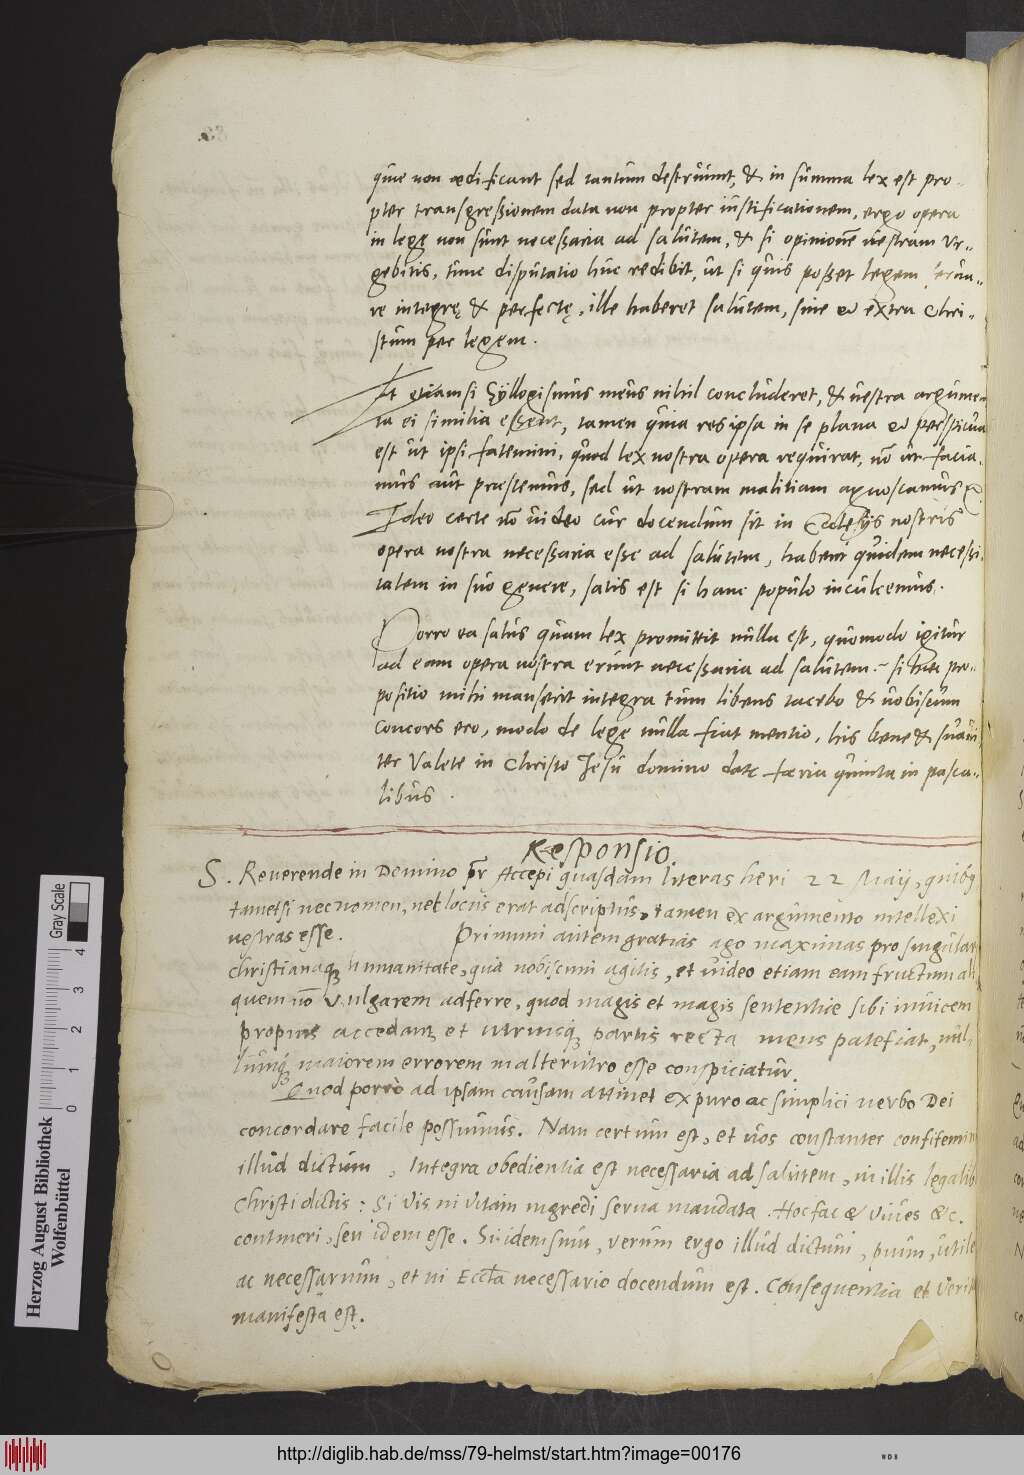 que non ædificant sed tantum destruunt, & in summa lex est pro-
pter transgressionem data non propter iustificationem, ergo opera
in lege non sunt necessaria ad salutem, & si opinionē uestram vr-
gebitis, tunc disputatio huc redibit, ut si quis posset legem
re integrę & perfectę, ille haberet salutem, sine & extra Chri-
stum per legem.
Et etiamsi Syllogismus meus nihil concluderet, & uestra argumen
ta ei similia essent, tamen quia res ipsa in se plana & perspicua
est ut ipsi fatemini, quod lex nostra opera requirat, nō ut facia-
mus aut præstemus, sed ut nostram malitiam agnoscamus
Ideo certe nō uideo cur docendum sit in Ecclesijs nostris
opera nostra necessaria esse ad salutem, habent quidem necessi-
tatem in suo genere, satis est si hanc populo inculcemus.
Porro ea salus quam lex promittit nulla est, quomodo igitur
ad eam opera nostra erunt necessaria ad salutem. si hæc pro-
positio mihi manserit integra tum libens tacebo & uobiscum
concors ero, modo de lege nulla fiat mentio, his bene & suaui
ter Valete in Christo Jesu domino datę færia quinta in pasca-
libus.
Responsio.
S. Reuerende in Domino pr̄ Accepi quasdam literas heri 22 Maij, quibꝯ
tametsi nec nomen, nec locus erat adscriptus, tamen ex argumento intellexi
uestras esse. Primum autem gratias ago maximas pro singulari
christianaqꝫ humanitate, qua nobiscum agitis, et uideo etiam eam fructum ali
quem nō Vulgarem adferre, quod magis et magis sententiæ sibi inuicem
propius accedant et utriusqꝫ partis recta mens patefiat, nul-
lumqꝫ maiorem errorem in alterutro esse conspiciatur.
Quod porro ad ipsam causam attinet ex puro ac simplici uerbo Dei
concordare facile possumus. Nam certum est, et uos constanter confitemini
illud dictum, Integra obedientia est necessaria ad salutem, in illis legalib
Christi dictis: Si vis in vitam ingredi serua mandata. Hoc fac & viues &c.
contineri, seu idem esse. Si idem sunt, verum ergo illud dictum, pium, utile
ac necessarium, et in Eccła necessario docendum est. Consequentia et verit
manifesta est.
Herzog August Bibliothek
Wolfenbüttel
Gray Scale
0 1 2 3 4
http://diglib.hab.de/mss/79-helmst/start.htm?image=00176